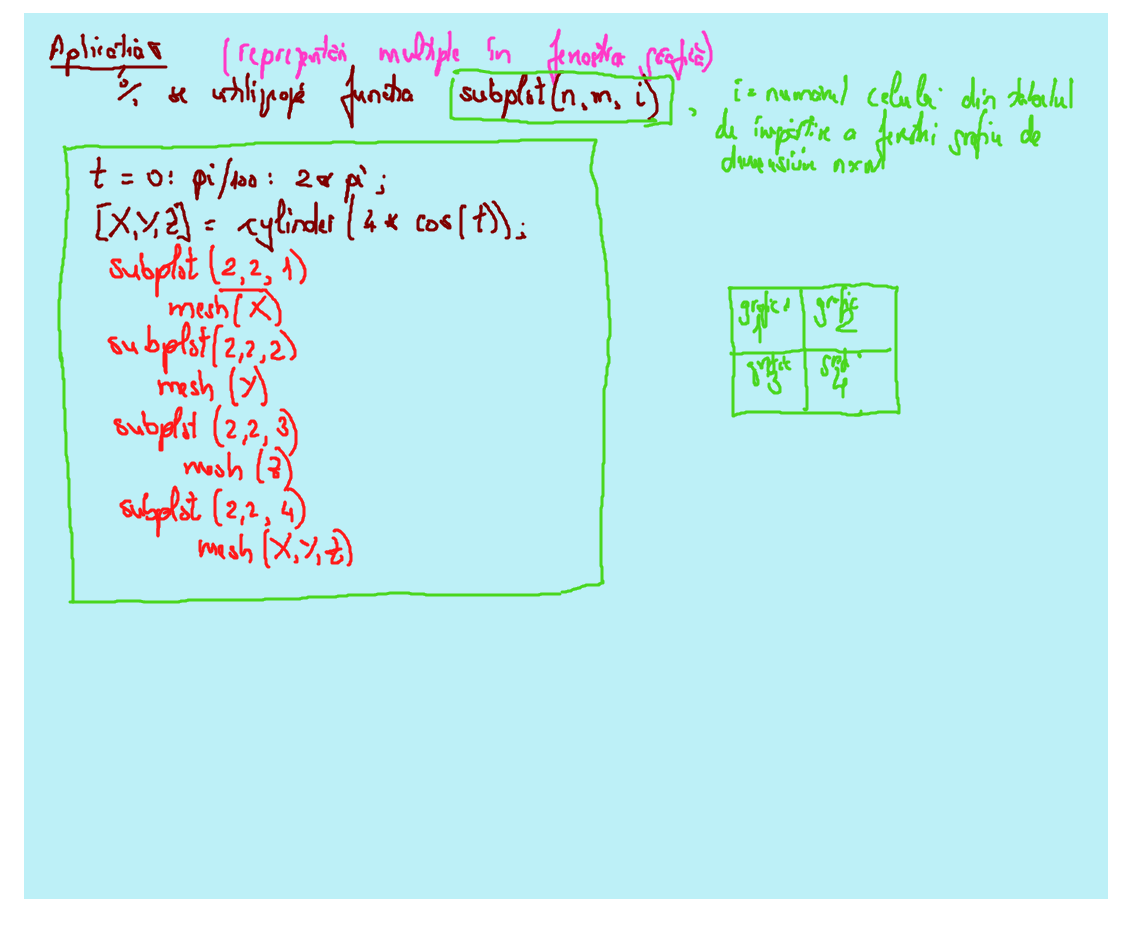 Aplicația (reprezentări multiple în fereastra grafică)
% se utilizează funcția subplot(n,m,i), i = numărul celulei din tabelul
de împărțire a ferestrei grafice de
dimensiune n×m
t = 0: pi/100: 2*pi;
[X,Y,Z] = cylinder(4*cos(t));
subplot(2,2,1)
mesh(X)
subplot(2,2,2)
mesh(Y)
subplot(2,2,3)
mesh(Z)
subplot(2,2,4)
mesh(X,Y,Z)
grafic 1 grafic 2
grafic 3 4